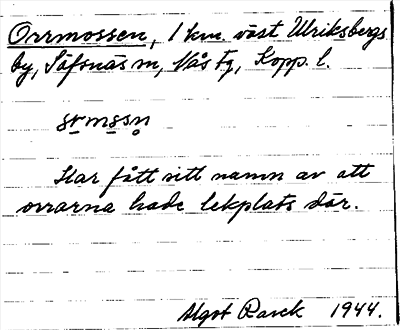 Orrmossen, 1 km. väst Ulriksbergs
by, Säfsnäs sn, Nås Fg, Kopp. l.
Har fått sitt namn av att
orrarna hade lekplats där.
Algot Rasck 1944.